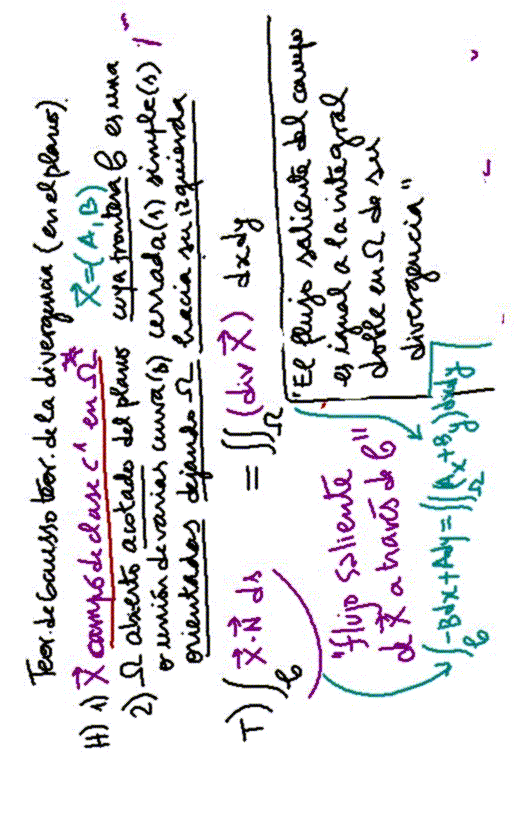 Teor. de Gauss o teor. de la divergencia (en el plano).
H) 1) X⃗ campo de clase C¹ en Ω̄ X⃗=(A,B)
2) Ω abierto acotado del plano cuya frontera C es una
o unión de varias curva(s) cerrada(s) simple(s)
orientadas dejando Ω hacia su izquierda
T) ∫_C X⃗·N⃗ ds = ∬_Ω (div X⃗) dxdy
"flujo saliente
de X⃗ a través de C"
"El flujo saliente del campo
es igual a la integral
doble en Ω de su
divergencia"
∫_C -Bdx+Ady = ∬_Ω (A_x+B_y)dxdy